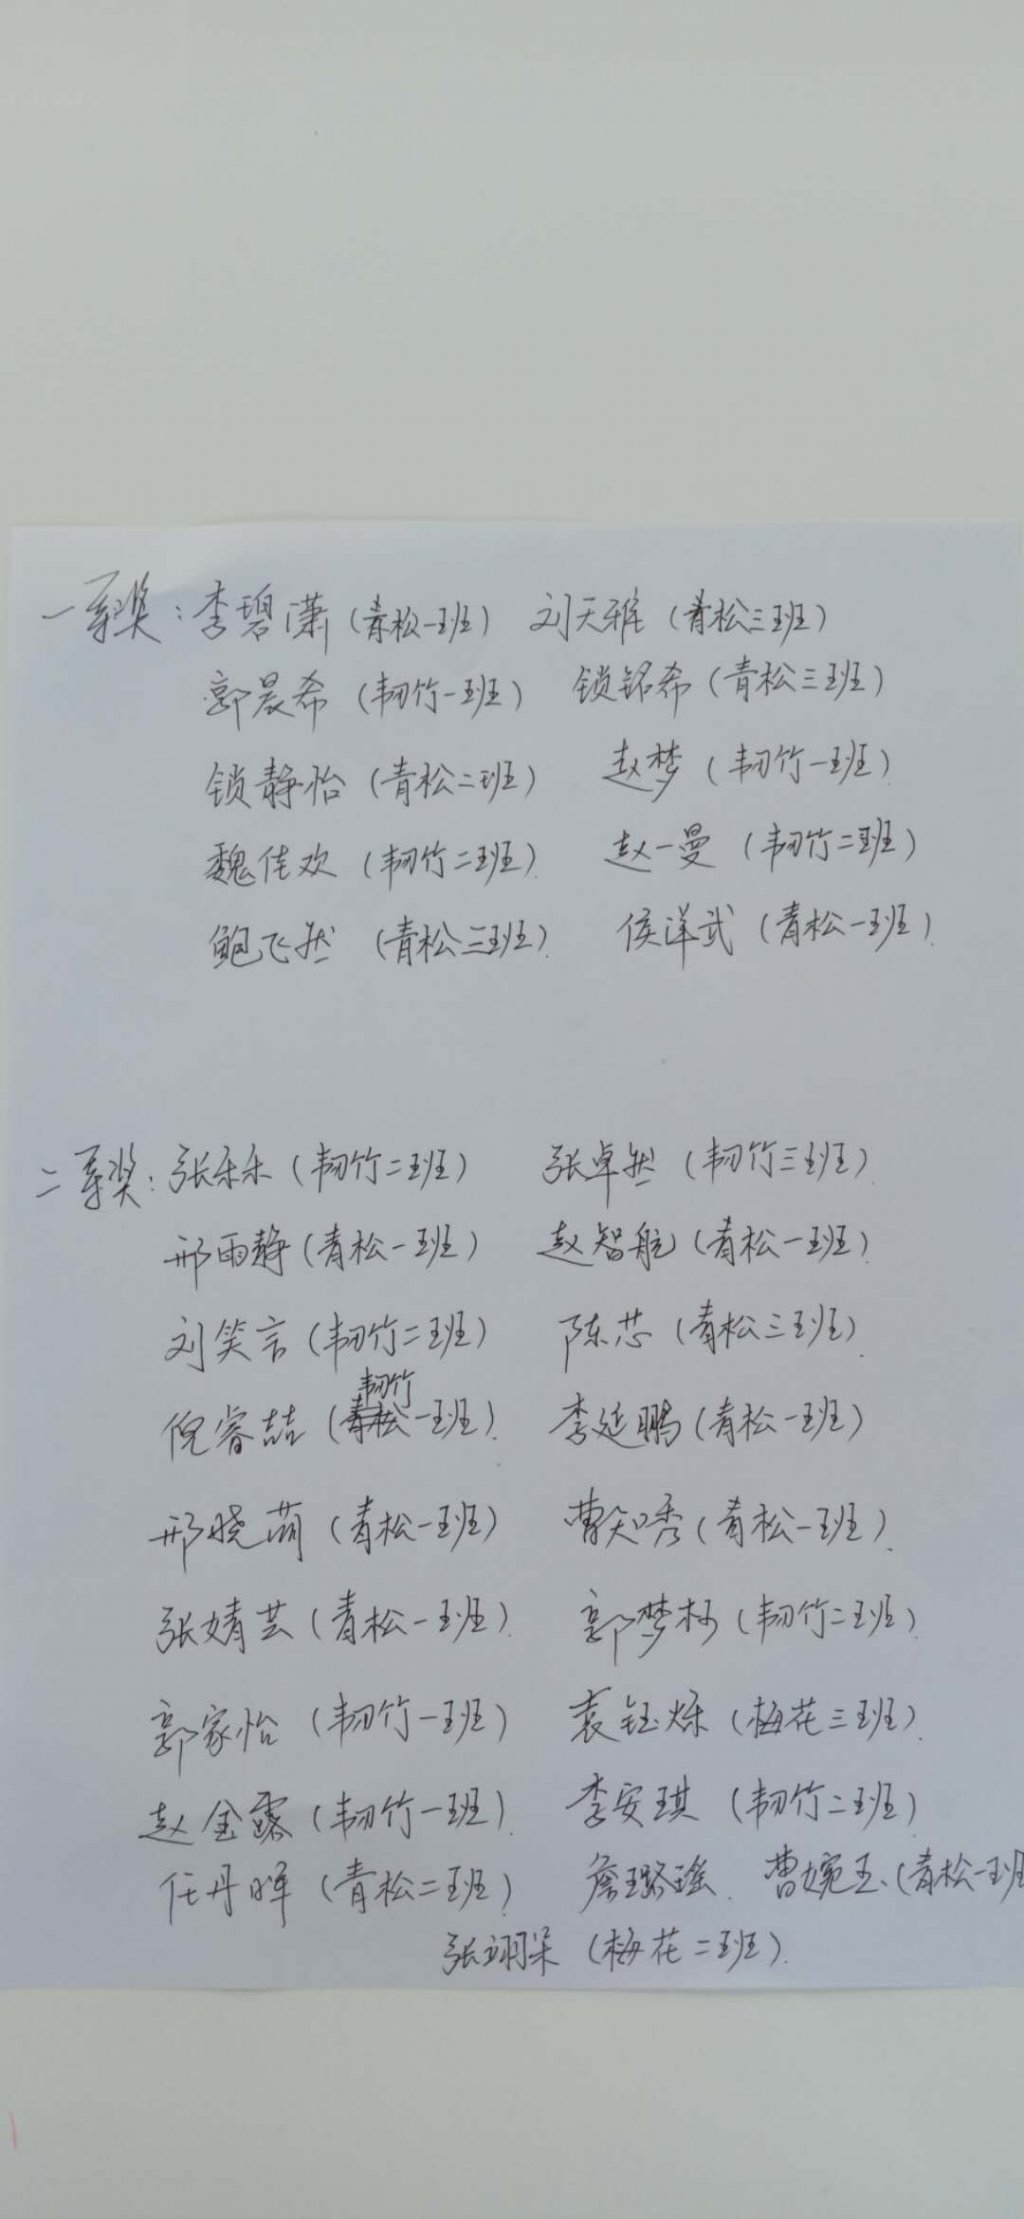 一等奖：李碧潇（青松一班） 刘天雅（青松三班）
郭晨希（韧竹一班） 锁铭希（青松三班）
锁静怡（青松二班） 赵梦（韧竹一班）
魏佳欢（韧竹二班） 赵一曼（韧竹二班）
鲍飞然（青松三班） 侯洋武（青松一班）
二等奖：张禾禾（韧竹二班） 张卓然（韧竹三班）
邢雨静（青松一班） 赵智航（青松一班）
刘笑言（韧竹二班） 陈芯（青松三班）
韧竹
倪睿喆（青松一班） 李延鹏（青松一班）
邢晓萌（青松一班） 曹知秀（青松一班）
张婧芸（青松一班） 郭梦杉（韧竹二班）
郭家怡（韧竹一班） 袁钰烁（梅花三班）
赵金露（韧竹一班） 李安琪（韧竹二班）
任丹晖（青松二班） 詹璐瑶、曹婉玉（青松一班
张翊朵（梅花二班）